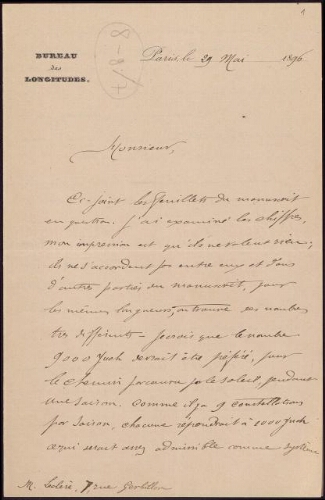 BUREAU
des
LONGITUDES.
Paris, le 29 Mai 1896
Monsieur,
Ci-joint les feuillets du manuscrit
en question. J'ai examiné les chiffres,
mon impression est qu'ils ne valent rien;
ils ne s'accordent pas entre eux et dans
d'autres parties du manuscrit, pour
les mêmes longueurs, on trouve des nombres
très différents. Je crois que le nombre
9000 devrait être préféré, pour
le chemin parcouru par le soleil, pendant
une saison. Comme il y a 9 constellations
par saison, chacune répondrait à 1000
ce qui serait assez admissible comme système
M. Leclère, 7 rue